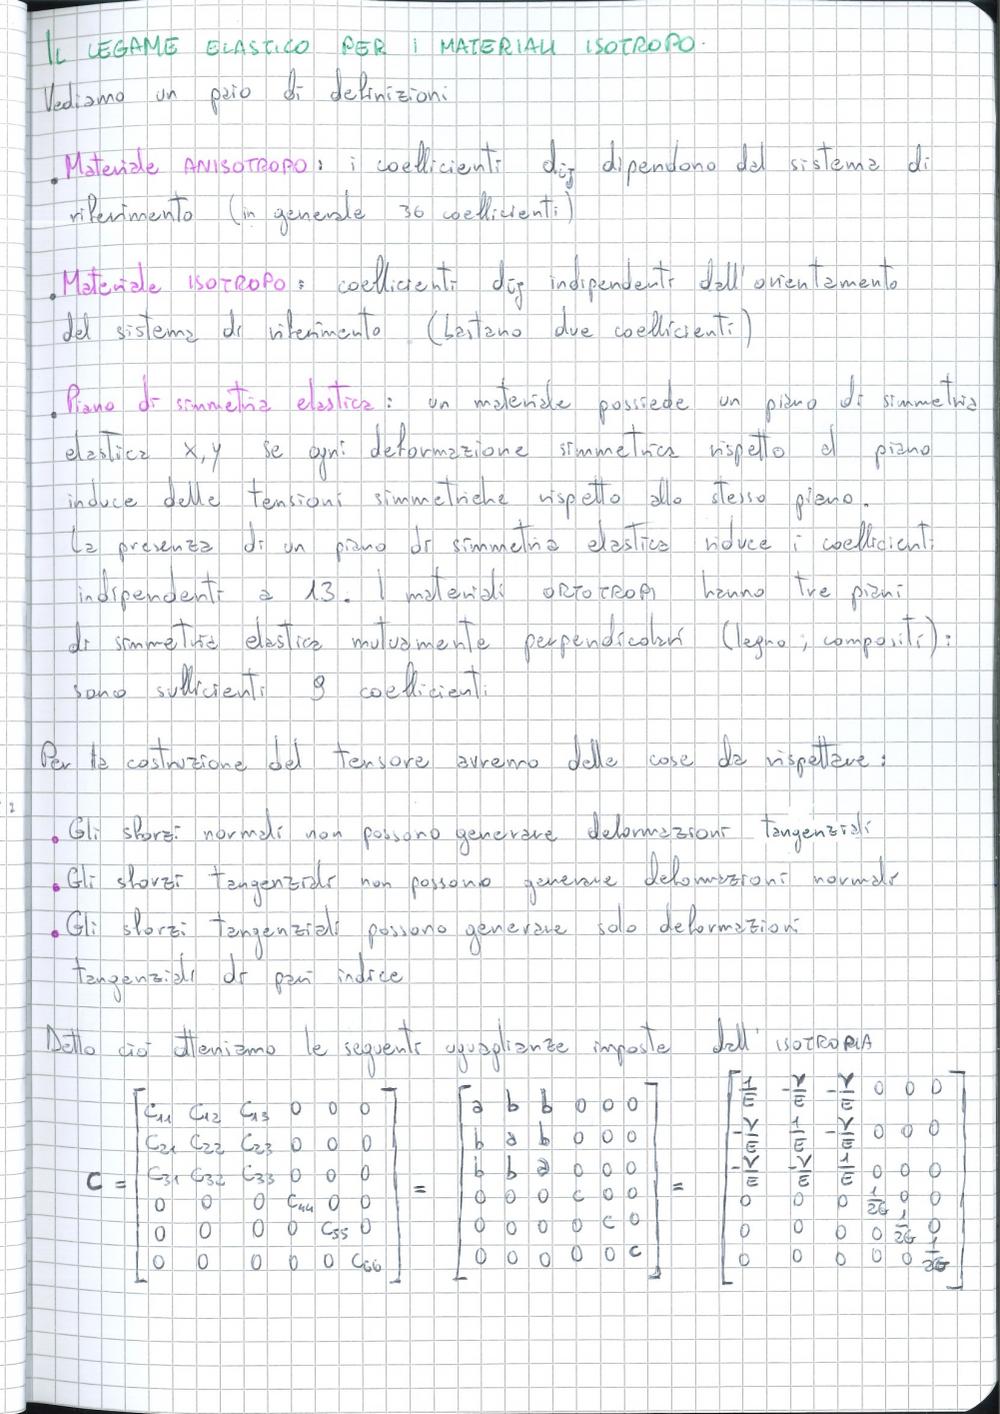 IL LEGAME ELASTICO PER I MATERIALI ISOTROPO.
Vediamo un paio di definizioni
. Materiale ANISOTROPO: i coefficienti dij dipendono dal sistema di
riferimento (in generale 36 coefficienti)
. Materiale ISOTROPO: coefficienti dij indipendenti dall'orientamento
del sistema di riferimento (bastano due coefficienti)
. Piano di simmetria elastica: un materiale possiede un piano di simmetria
elastica x,y se ogni deformazione simmetrica rispetto al piano
induce delle tensioni simmetriche rispetto allo stesso piano.
La presenza di un piano di simmetria elastica riduce i coefficienti
indipendenti a 13. I materiali ORTOTROPI hanno tre piani
di simmetria elastica mutuamente perpendicolari (legno; compositi):
sono sufficienti 9 coefficienti
Per la costruzione del tensore avremo delle cose da rispettare:
. Gli sforzi normali non possono generare deformazioni tangenziali
. Gli sforzi tangenziali non possono generare deformazioni normali
. Gli sforzi tangenziali possono generare solo deformazioni
tangenziali di pari indice
Detto ciò otteniamo le seguenti uguaglianze imposte dall'ISOTROPIA
C = [C11 C12 C13 0 0 0 = [a b b 0 0 0 = [1/E -ν/E -ν/E 0 0 0
C21 C22 C23 0 0 0 b a b 0 0 0 -ν/E 1/E -ν/E 0 0 0
C31 C32 C33 0 0 0 b b a 0 0 0 -ν/E -ν/E 1/E 0 0 0
0 0 0 C44 0 0 0 0 0 c 0 0 0 0 0 1/2G 0 0
0 0 0 0 C55 0 0 0 0 0 c 0 0 0 0 0 1/2G 0
0 0 0 0 0 C66] 0 0 0 0 0 c] 0 0 0 0 0 1/2G]